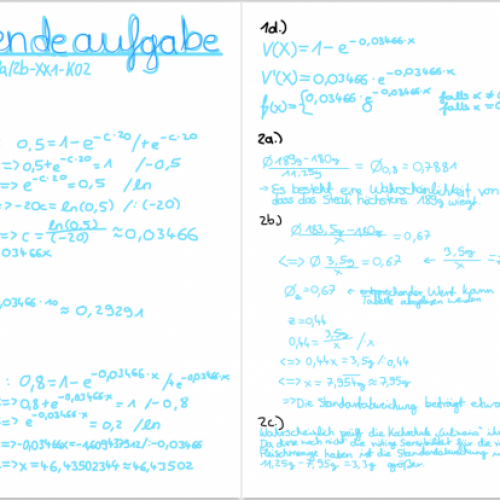 endeaufgabe
a/2b-XX1-K02
0,5=1-e^-c·20 /+e^-c·20
=>0,5+e^-c·20=1 /-0,5
=> e^-c·20=0,5 /ln
=>-20c=ln(0,5) /:(-20)
=> c=ln(0,5)/(-20) ≈0,03466
03466x
03466·10 ≈0,29291
: 0,8=1-e^-0,03466·x /+e^-0,03466·x
=>0,8+e^-0,03466·x=1 /-0,8
=> e^-0,03466·x=0,2 /ln
=>-0,03466x=-1,609437912/:-0,03466
=>x=46,43502344≈46,43502
1d.)
V(X)=1-e^-0,03466·x
V'(X)=0,03466·e^-0,03466·x
f(x)={0,03466·e^-0,03466·x falls x ≠
0 falls x =
2a.)
Ø 189g-180g/11,25g = Ø0,8=0,7881
→ Es besteht eine Wahrscheinlichkeit von
dass das Steak höchstens 189g wiegt.
2b.)
Ø 183,5g-180g/x =0,67
<=> Ø 3,5g/x =0,67 ← 3,5g/x =
Ø =0,67 ← entsprechender Wert kann
Tabelle abgelesen werden
z=0,44
0,44=3,5g/x /x
<=> 0,44x=3,5g/:0,44
<=> x=7,954g≈7,95g
=>Die Standardabweichung beträgt etwa
2c.)
Wahrscheinlich prüft die Kochschule
Da diese noch nicht die nötige Sensibilität für die
Fleischmenge haben ist die Standardabweichung
11,25g-7,95g=3,3g größer.